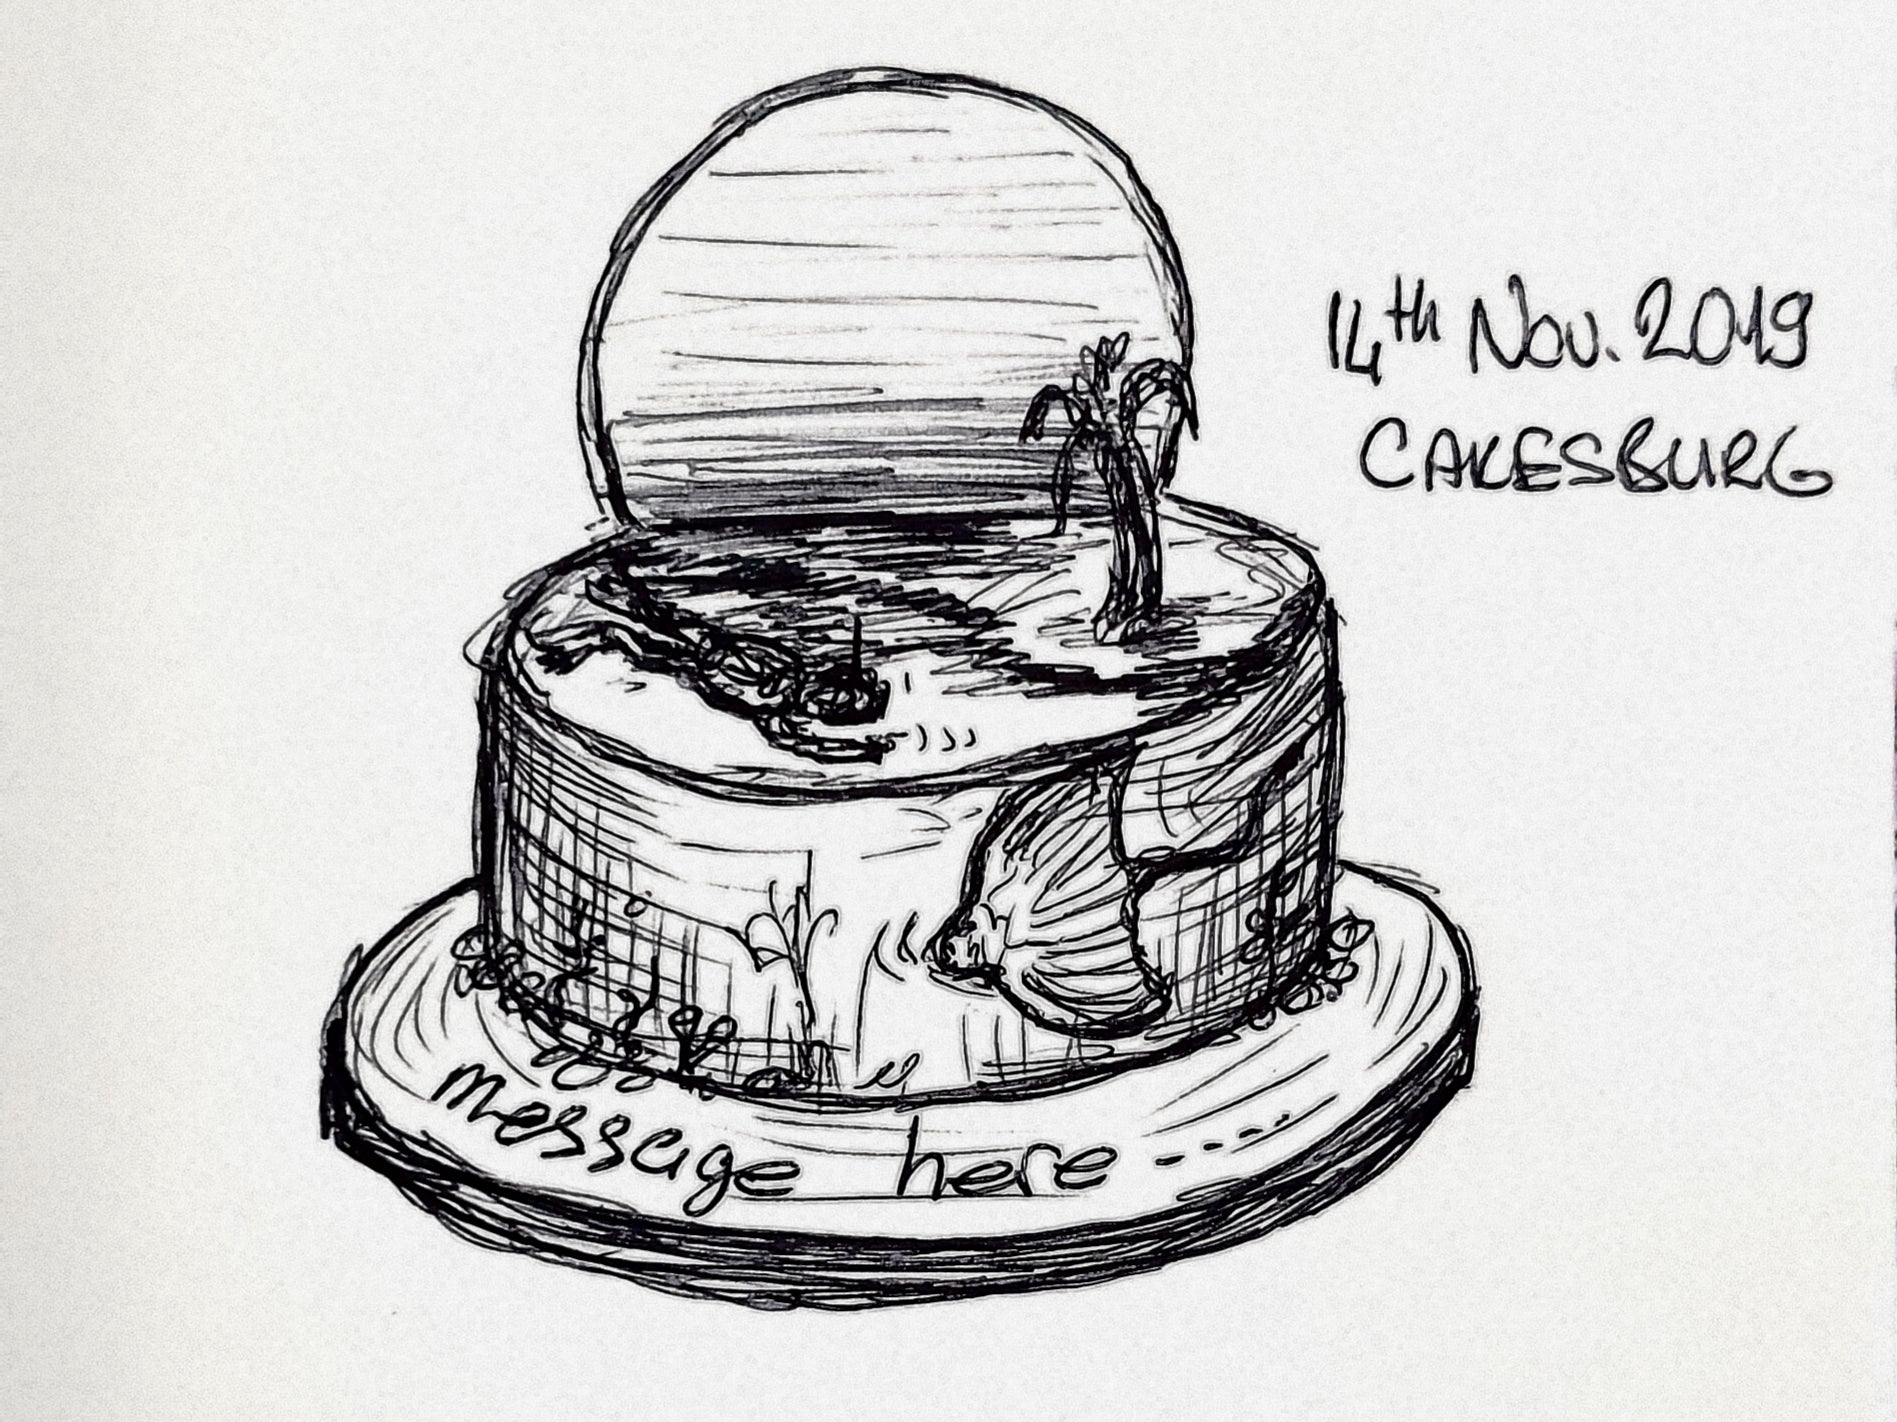 14th Nov. 2019
CAKESBURG
message here -----